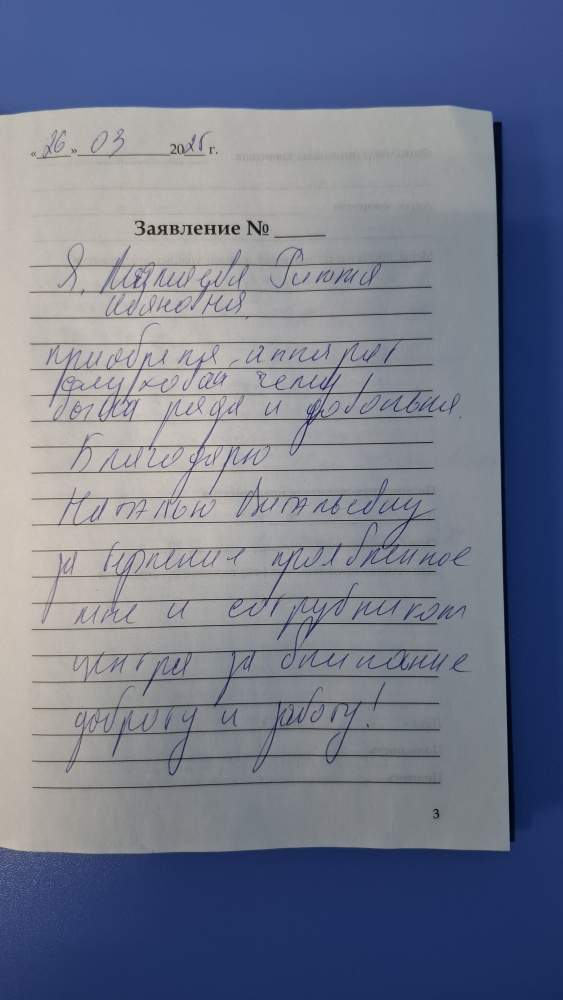 «26» 03 2025 г.
Заявление № ____
Я,
приобрела аппарат
слуховой чему
была рада и довольна.
Благодарю
Наталью Витальевну
за терпение проявленное
мне и сотрудникам
центра за внимание
доброту и заботу!
3